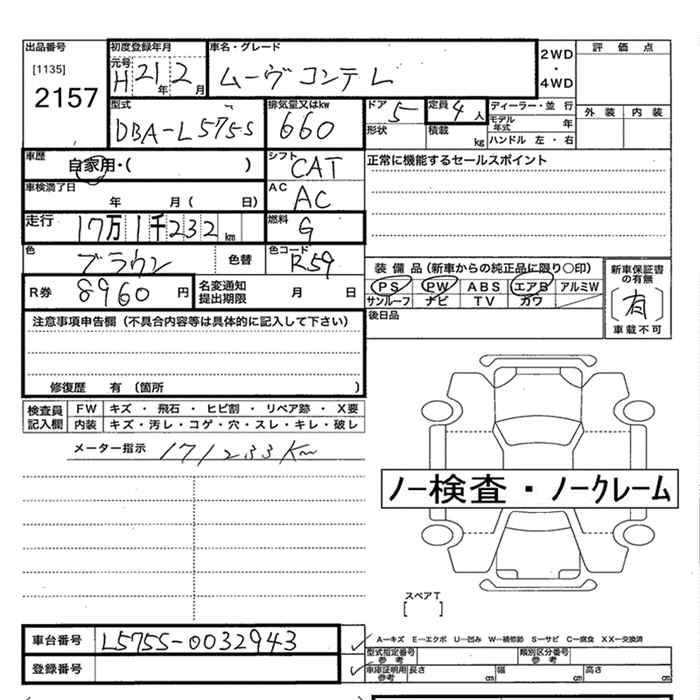 出品番号
[1135]
2157
初度登録年月
元号
H 21年 2月
車名・グレード
ムーヴ コンテ L
2WD
・
4WD
評価点
外装 内装
型式
DBA-L575S
排気量又はkw
660
ドア 5
形状
定員 4人
積載 kg
ディーラー・並行
モデル年式 年
ハンドル 左・右
車歴
自家用・( )
シフト CAT
正常に機能するセールスポイント
車検満了日
年 月( 日)
AC AC
走行 17万1千232km
燃料 G
色 ブラウン 色替
色コード R59
R券 8960円
名変通知
提出期限 月 日
装備品(新車からの純正品に限り○印)
PS PW ABS エアB アルミW
サンルーフ ナビ TV カワ
後日品
新車保証書
の有無
[有]
車載不可
注意事項申告欄(不具合内容等は具体的に記入して下さい)
修復歴 有(箇所 )
検査員
記入欄
FW キズ・飛石・ヒビ割・リペア跡・X要
内装 キズ・汚レ・コゲ・穴・スレ・キレ・破レ
メーター指示 171233Km
ノー検査・ノークレーム
スペアT
[ ]
車台番号 L575S-0032943
登録番号
A―キズ E―エクボ U―凹み W―補修跡 S―サビ C―腐食 XX―交換済
型式指定番号
参考
類別区分番号
参考
車庫証明用
参考
長さ cm 幅 cm 高さ cm